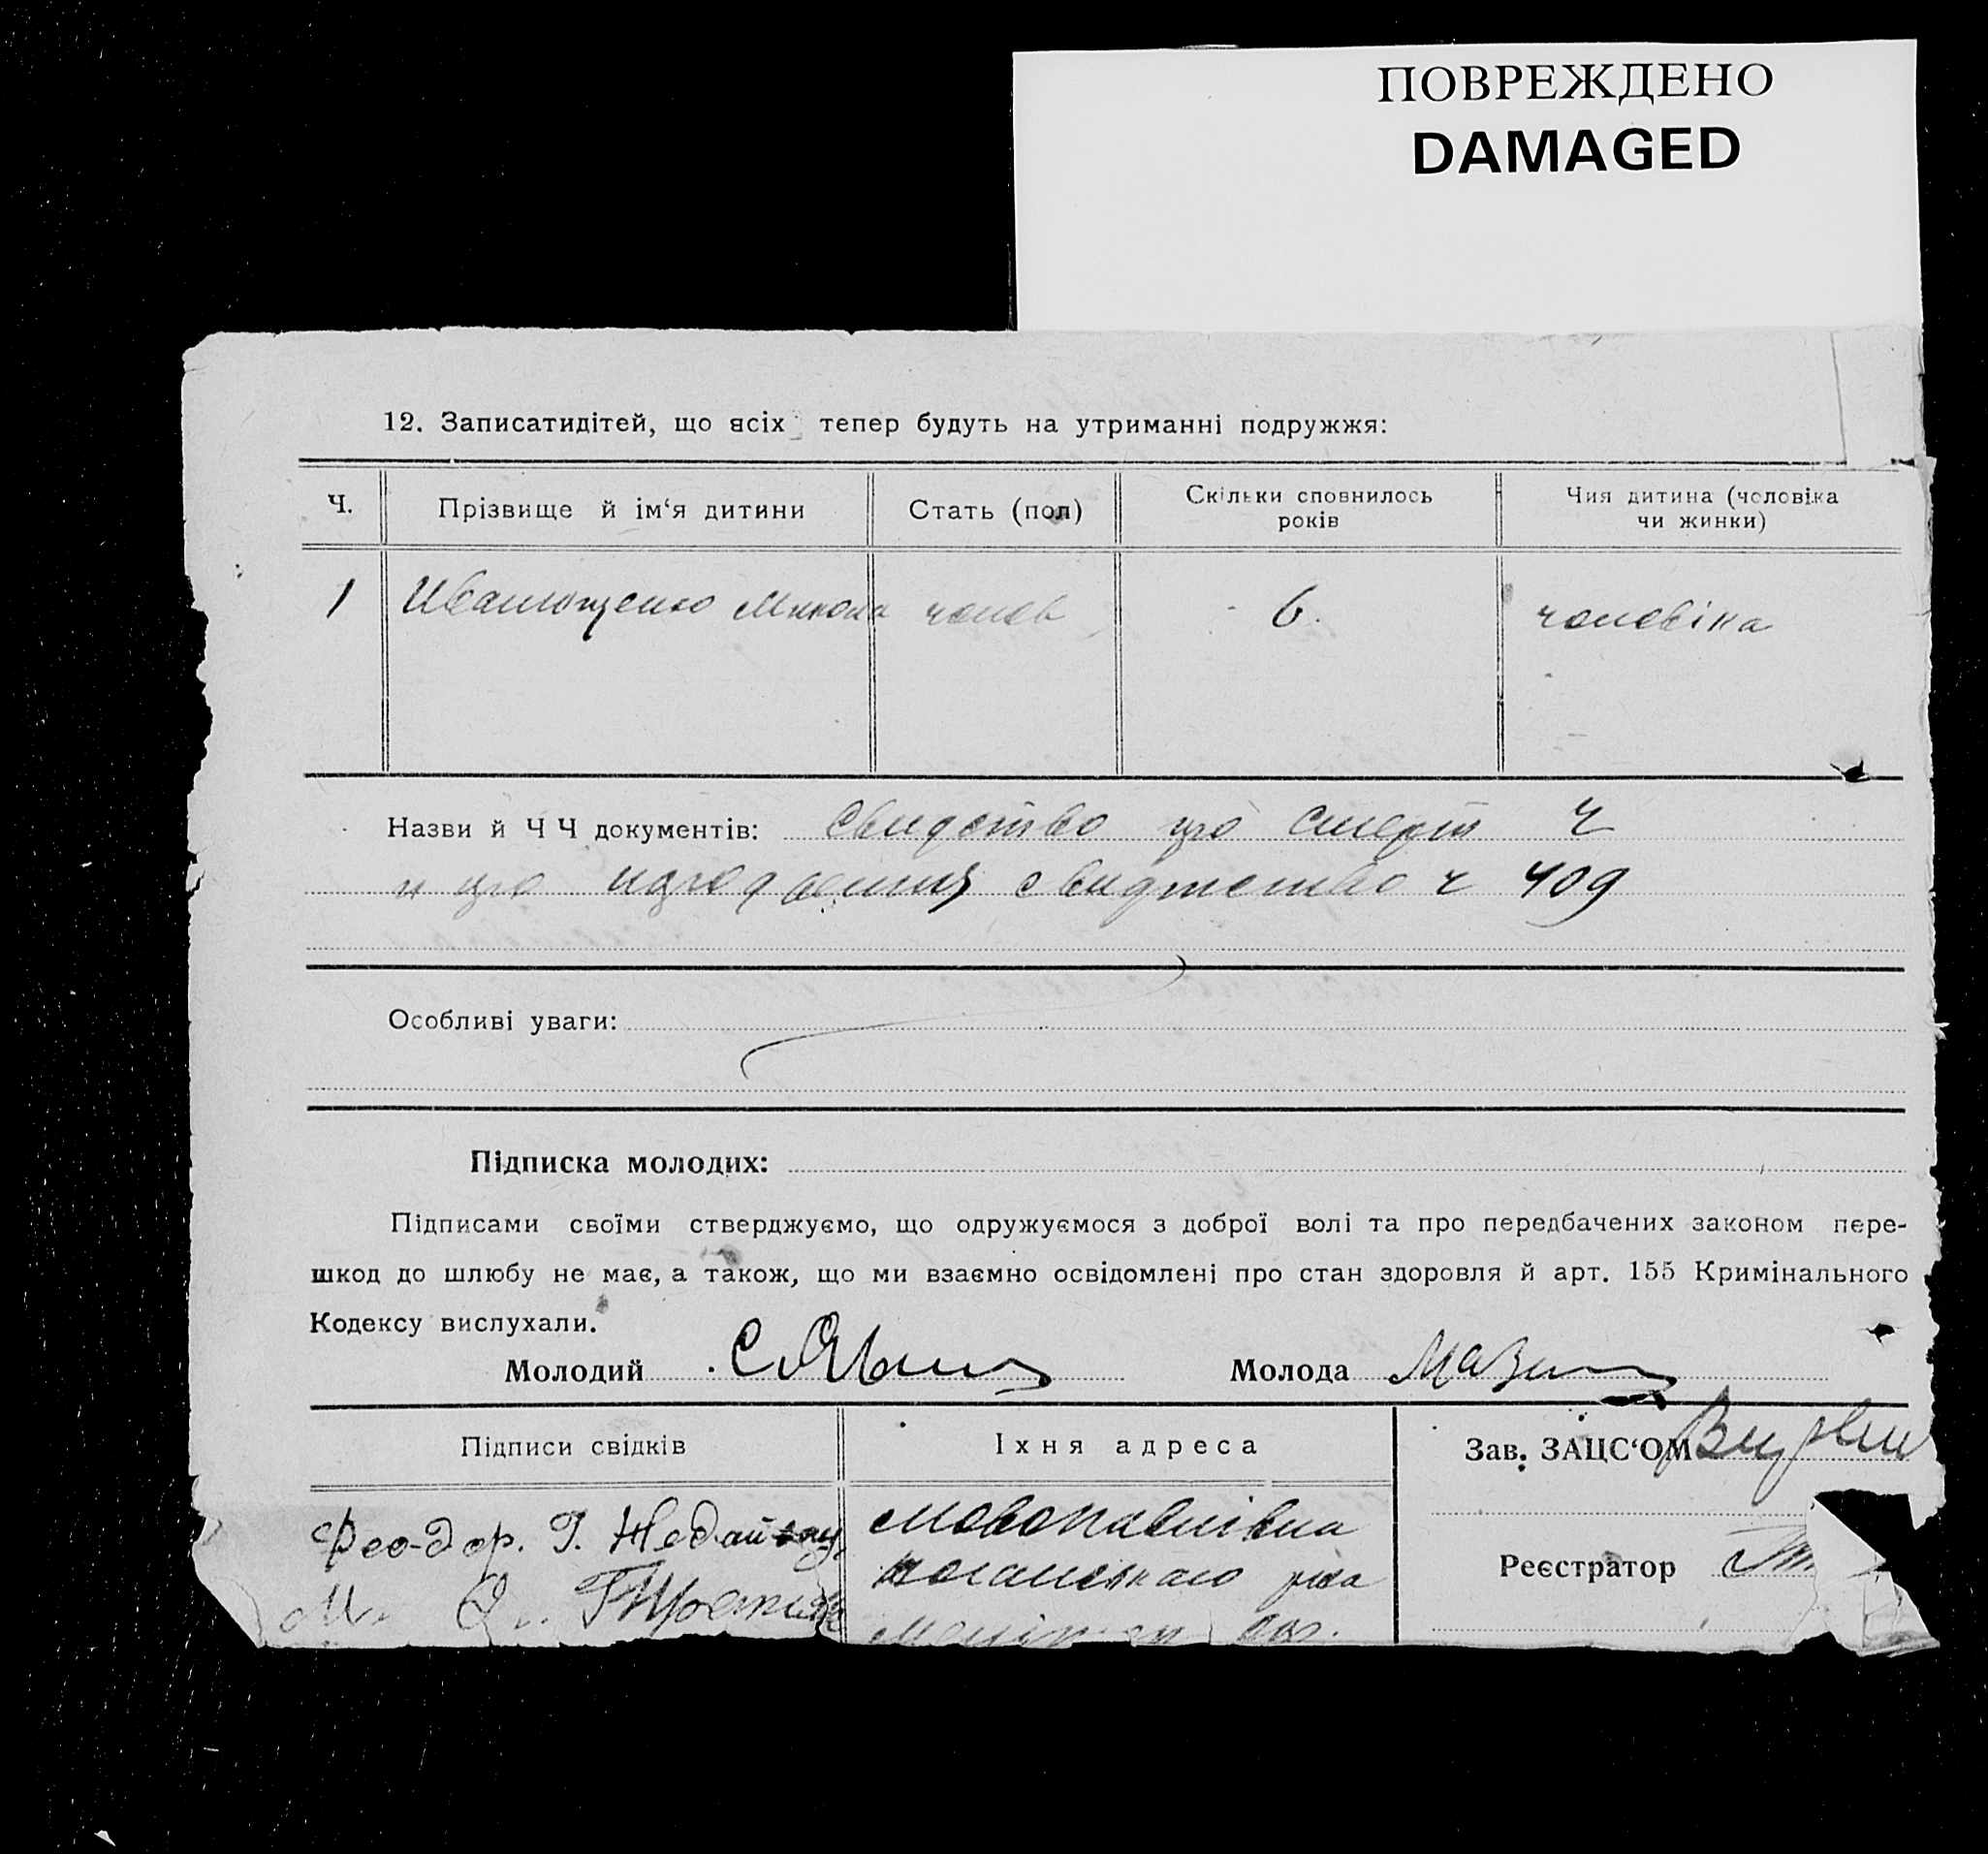 ПОВРЕЖДЕНО
DAMAGED
12. Записатидітей, що всіх тепер будуть на утриманні подружжя:
Ч.
Прізвище й ім‘я дитини
Стать (пол)
Скільки сповнилось
років
Чия дитина (чоловіка
чи жинки)
1 Иванющенко Микола чолов 6. чоловіка
Назви й Ч Ч документів: свидетво про смерт Ч
и про свидтетво ч 409
Особливі уваги:
Підписка молодих:
Підписами своїми стверджуємо, що одружуємося з доброї волі та про передбачених законом пере-
шкод до шлюбу не має, а також, що ми взаємно освідомлені про стан здоровля й арт. 155 Кримінального
Кодексу вислухали.
Молодий Молода
Підписи свідків
Іхня адреса
Зав. ЗАЦС‘ОМ
Феодор. Г.
Новопавлівка
Реєстратор